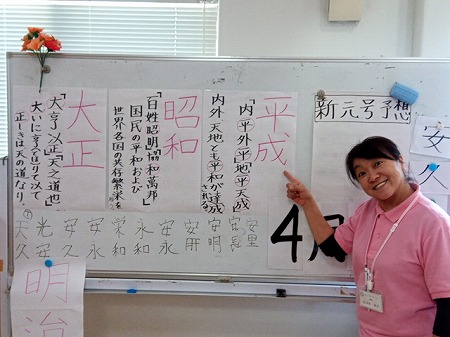 新元号予想
安久
平成
「内平外成」「地平天成」
内外、天地とも平和が達成
される
昭和
「百姓昭明、協和萬邦」
国民の平和および
世界各国の共存繁栄を
大正
「大亨以正、天之道也」
大いに亨り通りて以て
正しきは天の道なり。
4月
安里
安長
安明
安永
永和
栄和
安永
安久
光安
天久
明治